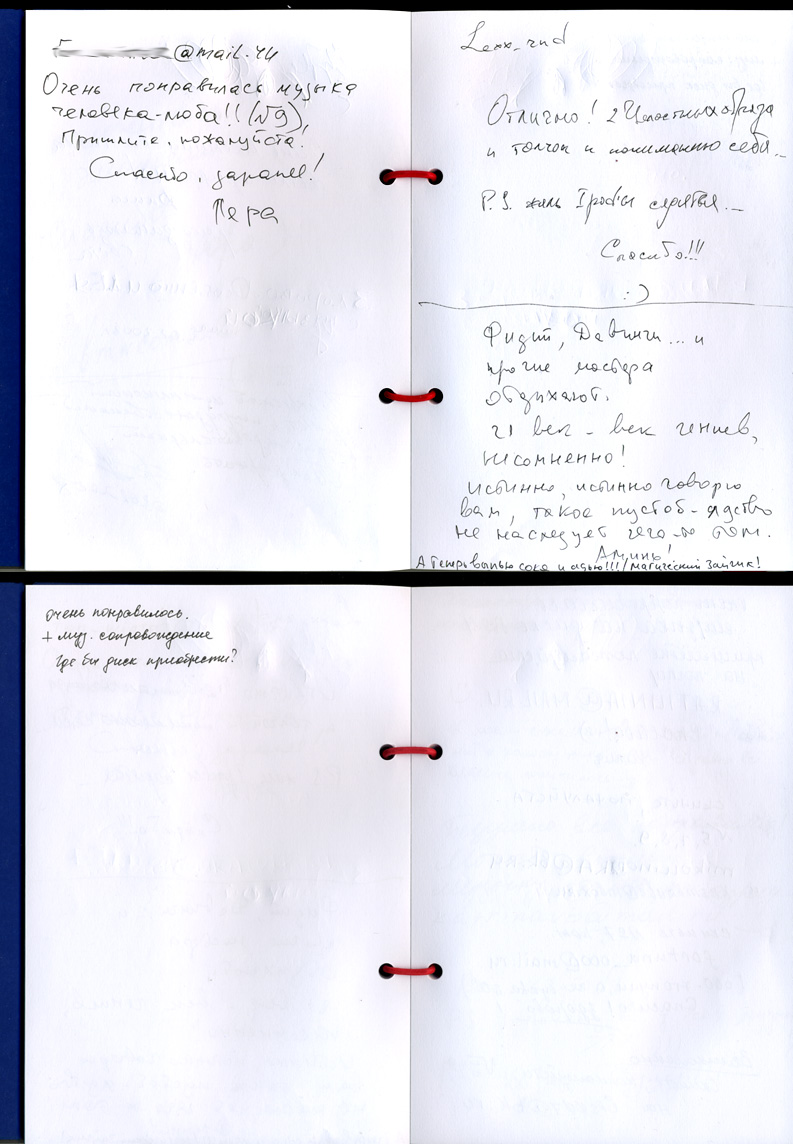 @mail.ru
Очень понравилась музыка
человека-люба!! (№9),
Пришлите, пожалуйста!
Спасибо, заранее!
Пера
Lexx_rud
Отлично! 2 Целостных образа
и толчок к пониманию себя...
P.S. жаль
Спасибо!!!
:)
Фидий, Давинчи... и
прочие мастера
отдыхают.
21 век - век гениев,
несомненно!
истинно, истинно говорю
вам, такое
не наследует чего-то там.
Аминь!
сока и адью!!! /магический Зайчик!
очень понравилось.
+ муз. сопровождение
Где бы диск приобрести?